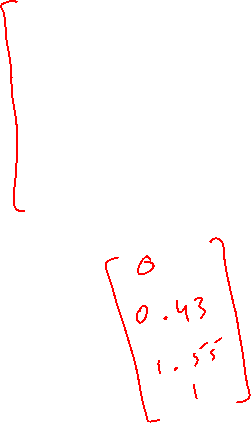 [
[ 0 ]
0.43
1.55
1